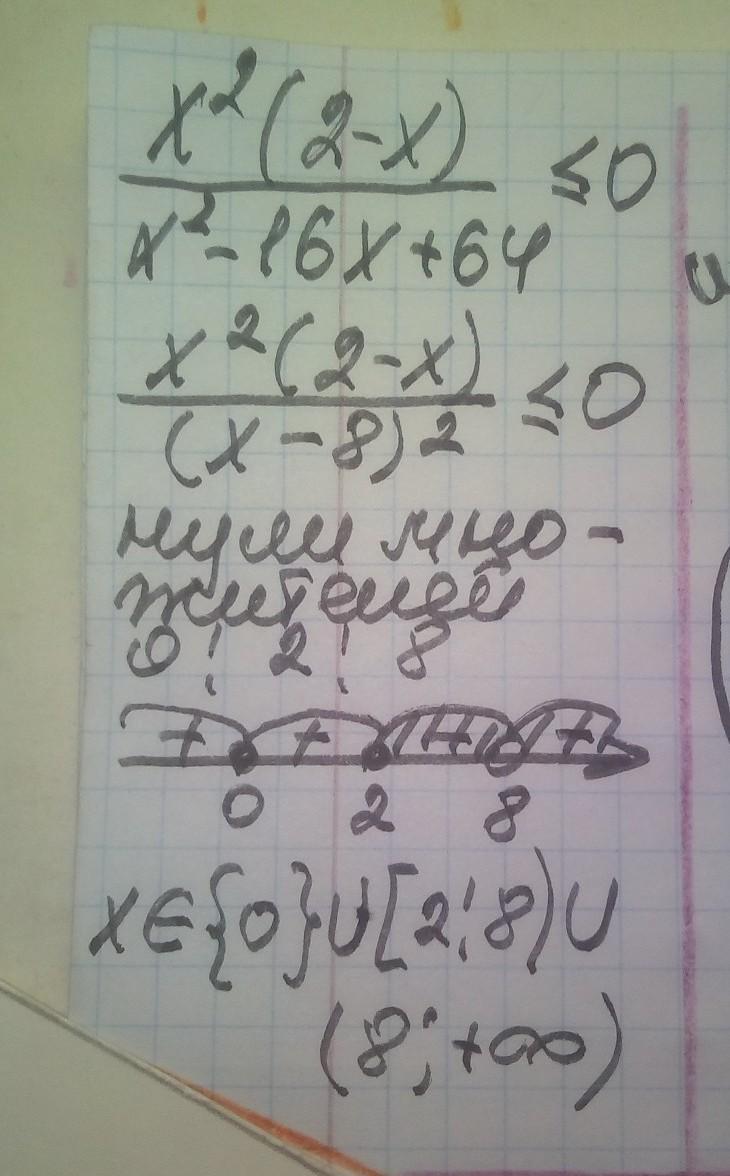 x²(2-x)
x²-16x+64 ≤0
x²(2-x)
(x-8)² ≤0
нули мно-
жителей
0; 2; 8
+ + - -
0 2 8
x∈{0}∪[2;8)∪
(8;+∞)